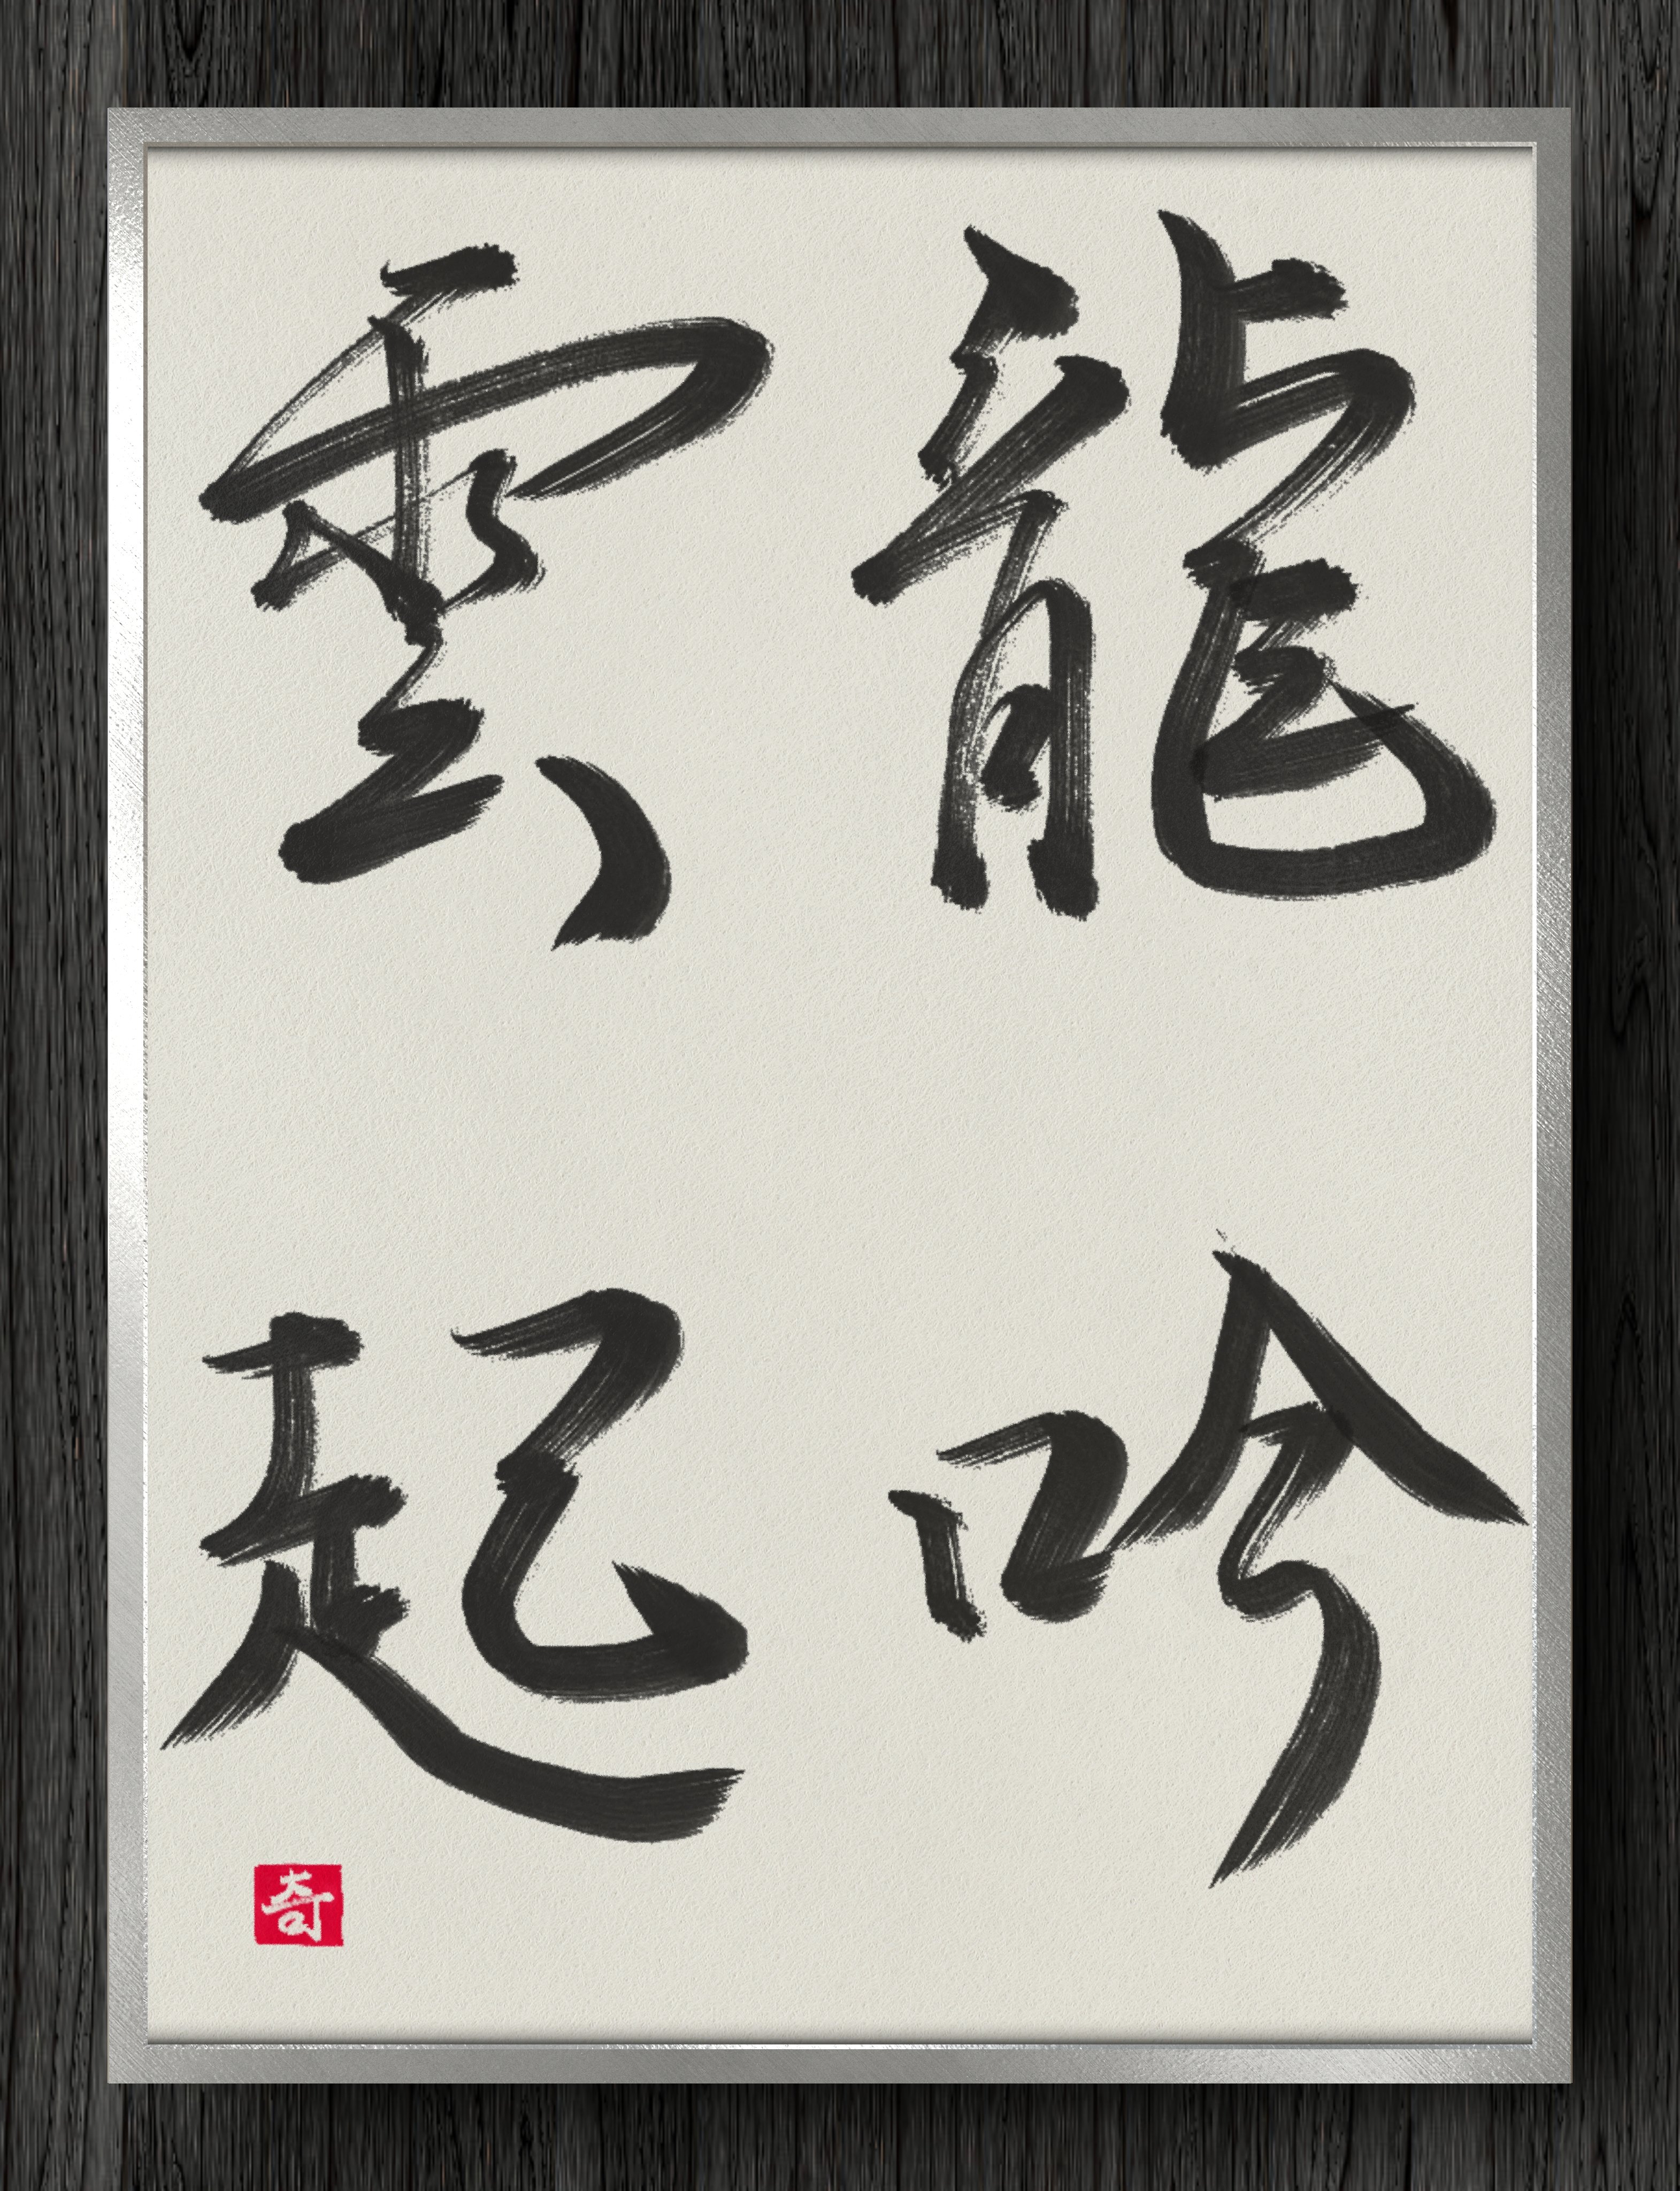 龍吟
雲起
奇